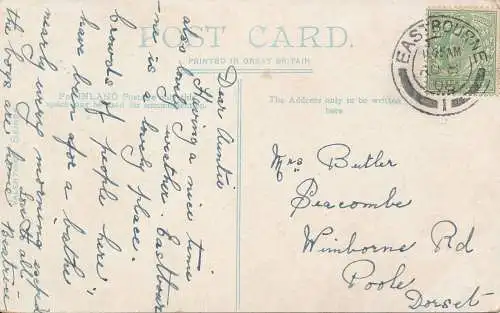 POST CARD.
PRINTED IN GREAT BRITAIN.
For INLAND Postage
The Address only to be written
here.
EASTBOURNE
Dear Auntie
Having a nice time
also lovely weather. Eastbour
-ne is a lovely place.
crowds of people here
have been for a "bathe"
nearly every morning
the boys are home
Love to all
Beatrice
Mrs Butler
Seacombe
Wimborne Rd
Poole
Dorset